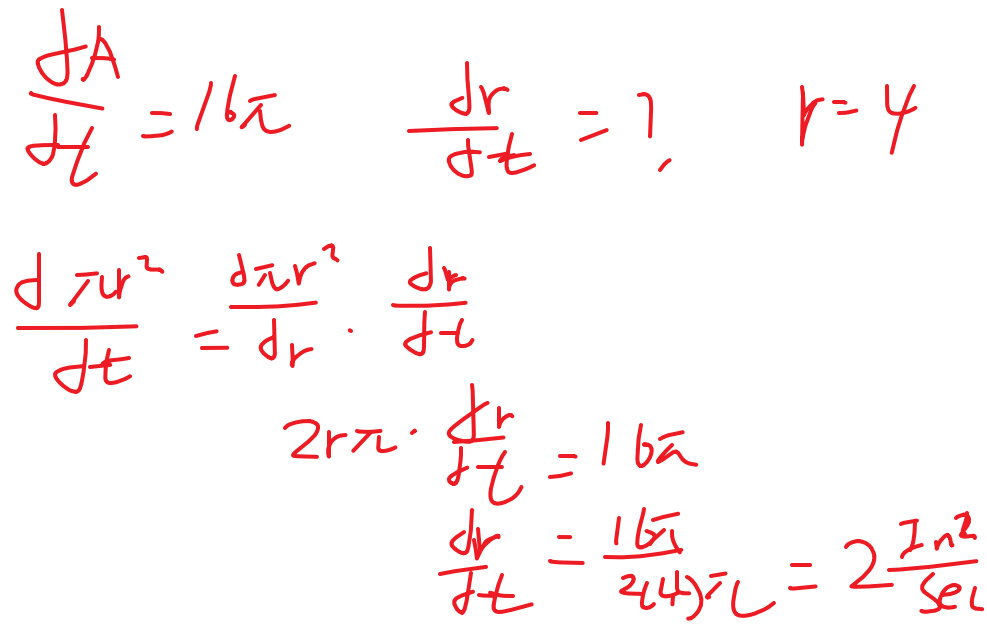 dA/dt = 16π dr/dt = ? r = 4
dπr²/dt = dπr²/dr · dr/dt
2rπ · dr/dt = 16π
dr/dt = 16π/2(4)π = 2 In²/sec